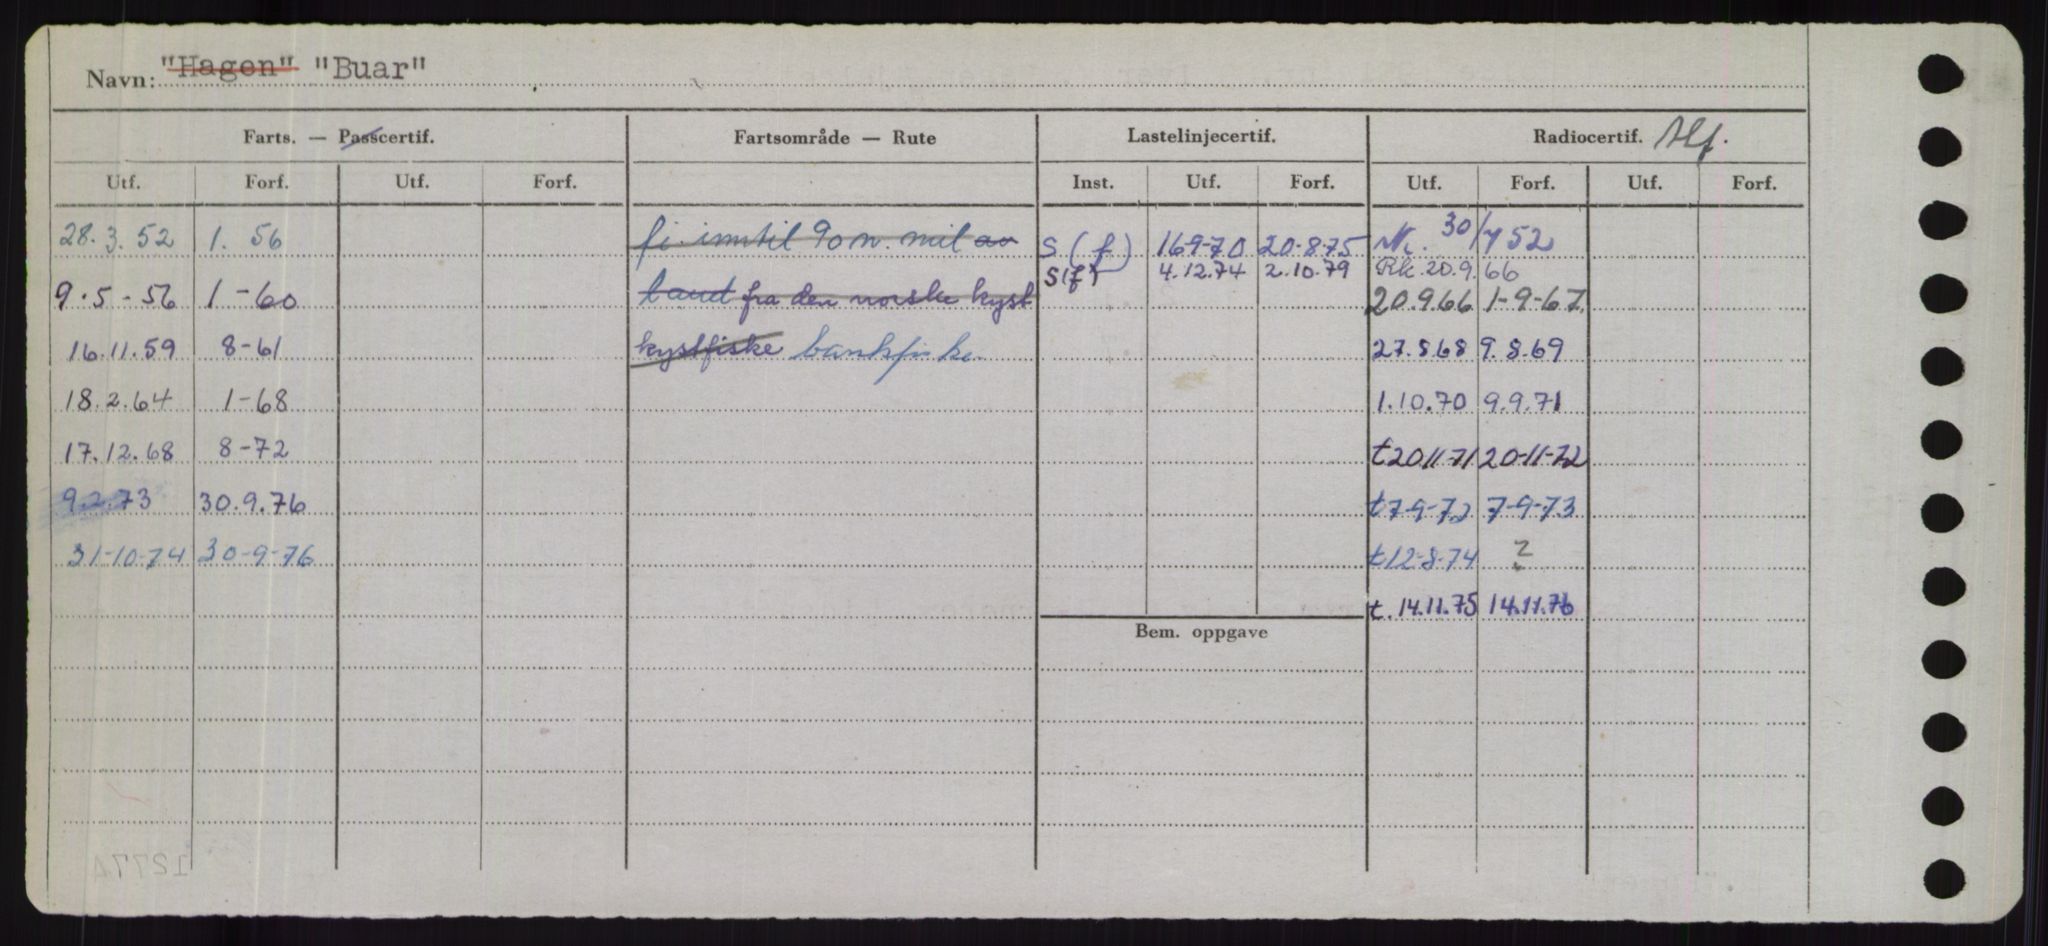 Navn: "Hagen" "Buar"
Farts. — Passcertif. Fartsområde — Rute Lastelinjecertif. Radiocertif.
Utf. Forf. Utf. Forf. Inst. Utf. Forf. Utf. Forf. Utf. Forf.
28.3.52 1. 56 fi. inntil 90 n. mil av S (f) 16-9-70 20-8-75 30/4 52
S(f) 4.12.74 2.10.79 Rk. 20.9.66
9.5-56 1-60 land fra den norske kyst 20.9.66 1-9-67
16.11.59 8-61 kystfiske bankfiske 27.8.68 9.8.69
18.2.64 1-68 1.10.70 9.9.71
17.12.68 8-72 t 20-11-71 20-11-72
9.2.73 30.9.76 t 7-9-72 7-9-73
31-10-74 30-9-76 t 12-8-74 ?
t. 14.11.75 14.11.76
Bem. oppgave